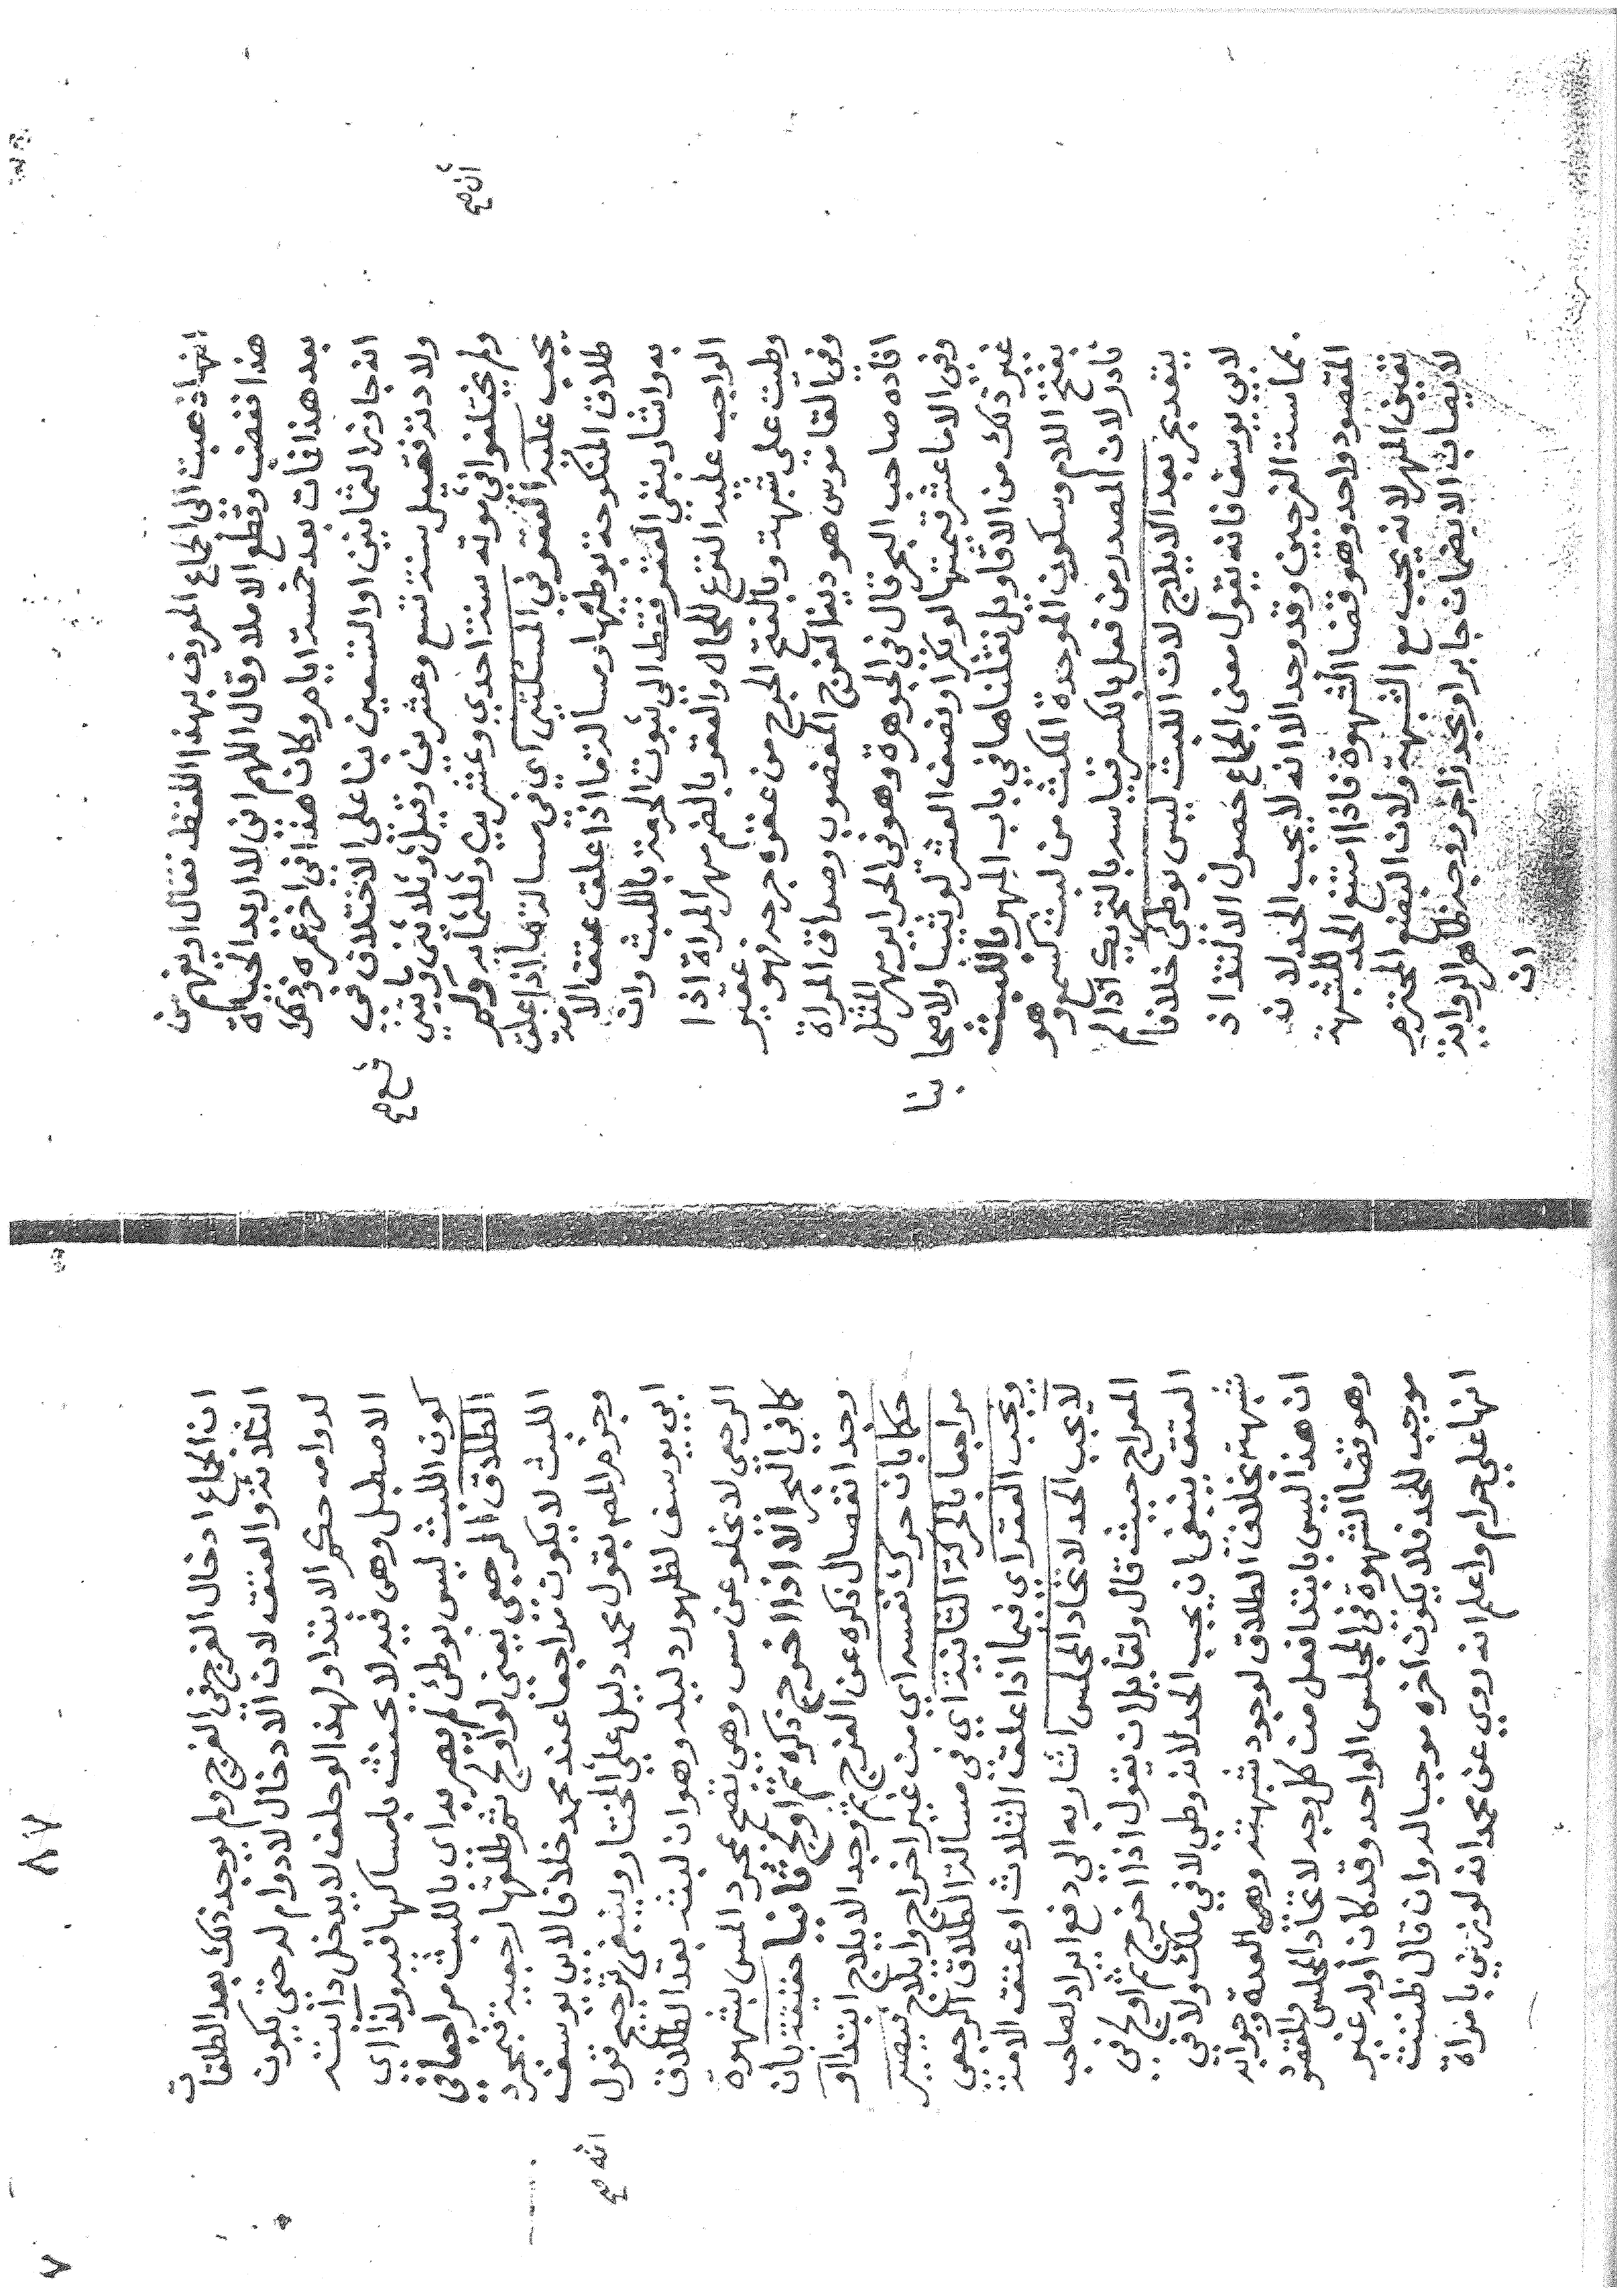 انها ذهبت الى الجماع المعروف بهذا اللفظ فقال او تفهمين
هذا ففضت وقطع الاملا وقال اللهم اني لا اريد الحياة
بعد هذا فمات بعد خمسة ايام وكان هذا في اخر عمره وذكر
انه جاوز الثمانين او التسعين بنا على الاختلاف في
ولادته فقيل سنة تسع وعشرين وقيل وثلاثين ومايتين
ولم يختلفوا في موته سنة احدى وعشرين وثلثمايه ولم
يجب عليه العقر في المسئلتين اي في مسالة ما اذا علق
طلاق المنكوحة بوطئها ومسالة ما اذا علق عتق الامة
به واشار بنفي العقر فقط الى ثبوت الحرمة باللبث وان
الواجب عليه النزع للحال والعقر بالضم مهر المراة اذا
وطيت على شبهة وبالفتح الجرح من عقره جرحه فهو عقير
وفي القاموس هو دية الفرج المغصوب وصداق المراة
افاده صاحب البحر قال في الجوهرة وهو في الحراير مهر المثل
وفي الاما عشر قيمتها لو بكرا ونصف العشر لو ثيبا ولا محا
غير ذلك من الاقاويل نقلناها في باب المهور باللبث هو
بفتح اللام وسكون الموحدة المكث من لبث كسمع و
نادر لان المصدر من فعل بالكسر قياسه بالتحريك اذا لم
يتعد بحر بعد الايلاج لان اللبث ليس بوطئ خلافا
لابي يوسف فانه يقول معنى الجماع حصول الالتذاذ
بمماسة الفرجين وقد وجد الا انه لا يجب الحد لان
المقصود واحد وهو قضا الشهوة فاذا امتنع الحد للشبهة
تعين المهر لانه يجب مع الشبهة ولان البضع المحترم
لا يصان الا بضمان جابر او بحد زاجر وجه ظاهر الرواية
ان
ان الجماع ادخال الفرج في الفرج ولم يوجد ذلك بعد الطلقات
الثلاثة والعتق لان الادخال لا دوام له حتى يكون
لدوامه حكم الابتدا ولهذا لو حلف لا يدخل دابته
الاصطبل وهي فيه لا يحنث بامساكها فيه ولذا اي
كون اللبث ليس بوطئ لم يصر به اي باللبث مراجعا في
الطلاق الرجعي يعني لو اولج ثم طلقها رجعيه فبمجرد
اللبث لا يكون مراجعا عند محمد خلافا لابي يوسف
وجزم المص بقول محمد دليل على المختار وينبغي ترجيح قول
ابي يوسف لظهور دليله وهو ان لبثه بعد الطلاق
الرجعي لا يخلو عن مس وهي تصح بمجرد المس بشهوة
كما في البحر الا اذا اخرج ذكره ثم اولج ثانيا حقيقة بان
وجد انفصال ذكره عن الفرج ثم وجد الايلاج ابتدا او
حكما بان حرك نفسه اي من غير اخراج وايلاج فيصير
مراجعا بالحركة الثانية اي في مسالة الطلاق الرجعي
ويجب العقر اي فيما اذا علق الثلاث او عتق الامة
لا يجب الحد لاتحاد المجلس اشار به الى دفع ايراد لصاحب
المعراج حيث قال ولقايل ان يقول اذا اخرج ثم اولج في
العتق ينبغي ان يجب الحد لانه وطي لا في ملك ولا في
شبهة بخلاف الطلاق لوجود شبهة وهي العدة وجوابه
ان هذا ليس بابتدا فعل من كل وجه لاتحاد المجلس والمقصود
وهو قضا الشهوة في المجلس الواحد وقد كان اوله غير
موجب للحد فلا يكون اخره موجبا له وان قال ظننت
انها علي حرام واعلم انه روي عن محمد انه لو زنى بامراة